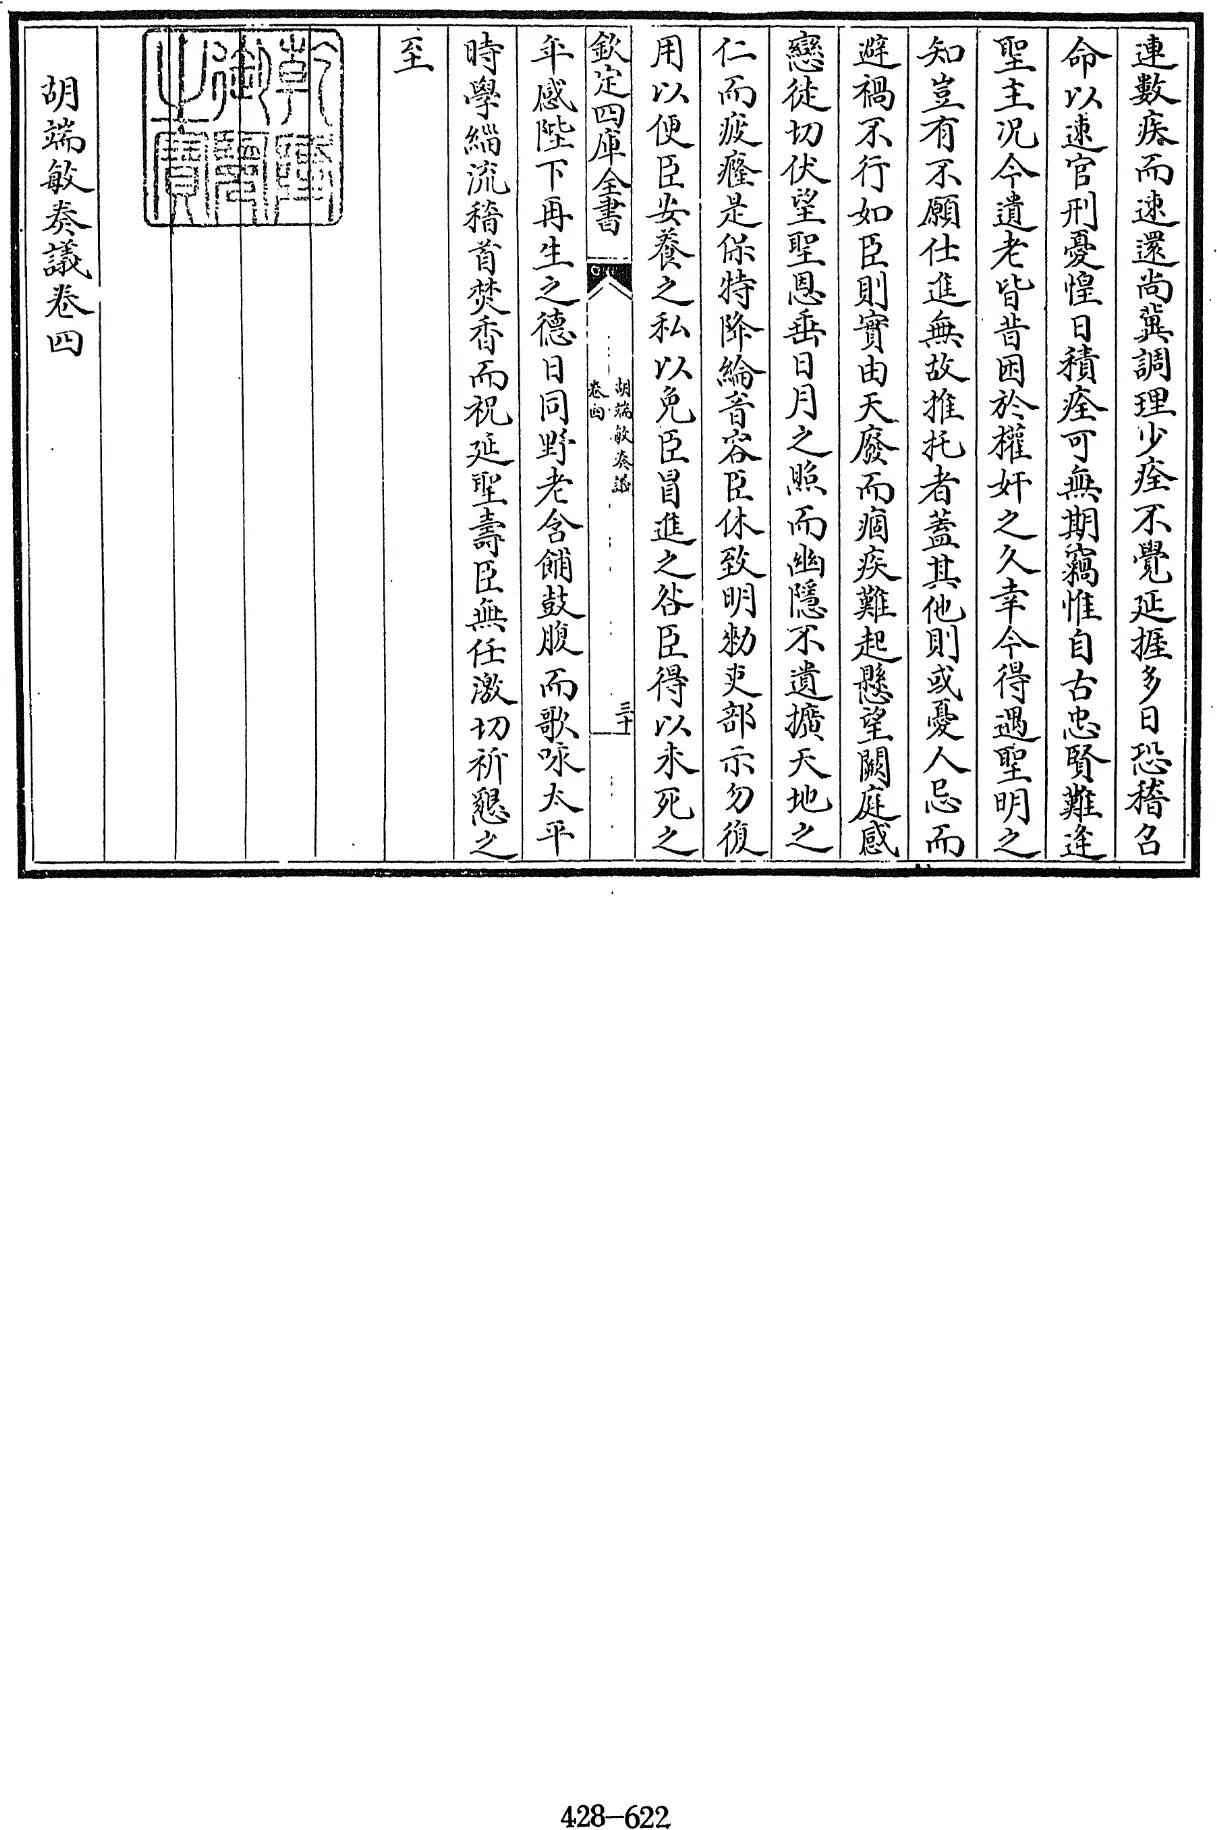 連數疾而速還尚冀調理少痊不覺延捱多日恐稽召
命以速官刑憂惶日積痊可無期竊惟自古忠賢難逢
聖主况今遺老皆昔困於權奸之久幸今得遇聖明之
知豈有不願仕進無故推托者蓋其他則或憂人忌而
避禍不行如臣則實由天廢而痼疾難起懸望闕庭感
戀徒切伏望聖恩垂日月之照而幽隱不遺擴天地之
仁而疲癃是保特降綸音容臣休致明勑吏部示勿復
用以便臣安養之私以免臣冒進之咎臣得以未死之
欽定四庫全書
胡端敏奏議
卷四
三十
年感陛下再生之德日同野老含餔鼓腹而歌咏太平
時學緇流稽首焚香而祝延聖壽臣無任激切祈懇之
至
乾隆御覽之寶
胡端敏奏議卷四
428-622